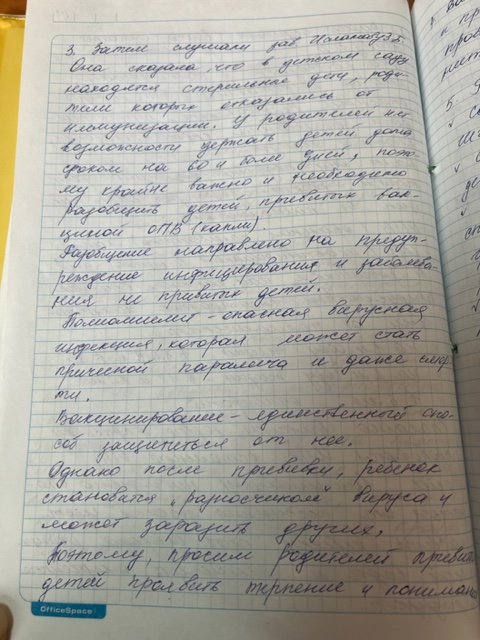 3. Затем слушали зав.
Она сказала, что в детском саду
находятся стерильные дети, роди-
тели которых отказались от
иммунизации. У родителей нет
возможности держать детей дома
сроком на 60 и боле дней, поэто
му крайне важно и необходимо
разобщить детей, привитых вак-
циной ОПВ (капли).
Разобщение направлено на предуп-
реждение инфицирования и заболева-
ния не привитых детей.
Полиомиелит - опасная вирусная
инфекция, которая может стать
причиной паралича и даже смер
ти.
Вакцинирование - единственный спо-
соб защититься от нее.
Однако после прививки, ребёнок
становится "разносчиком" вируса и
может заразить других.
Поэтому, просим родителей привит
детей проявить терпение и понимани
OfficeSpace